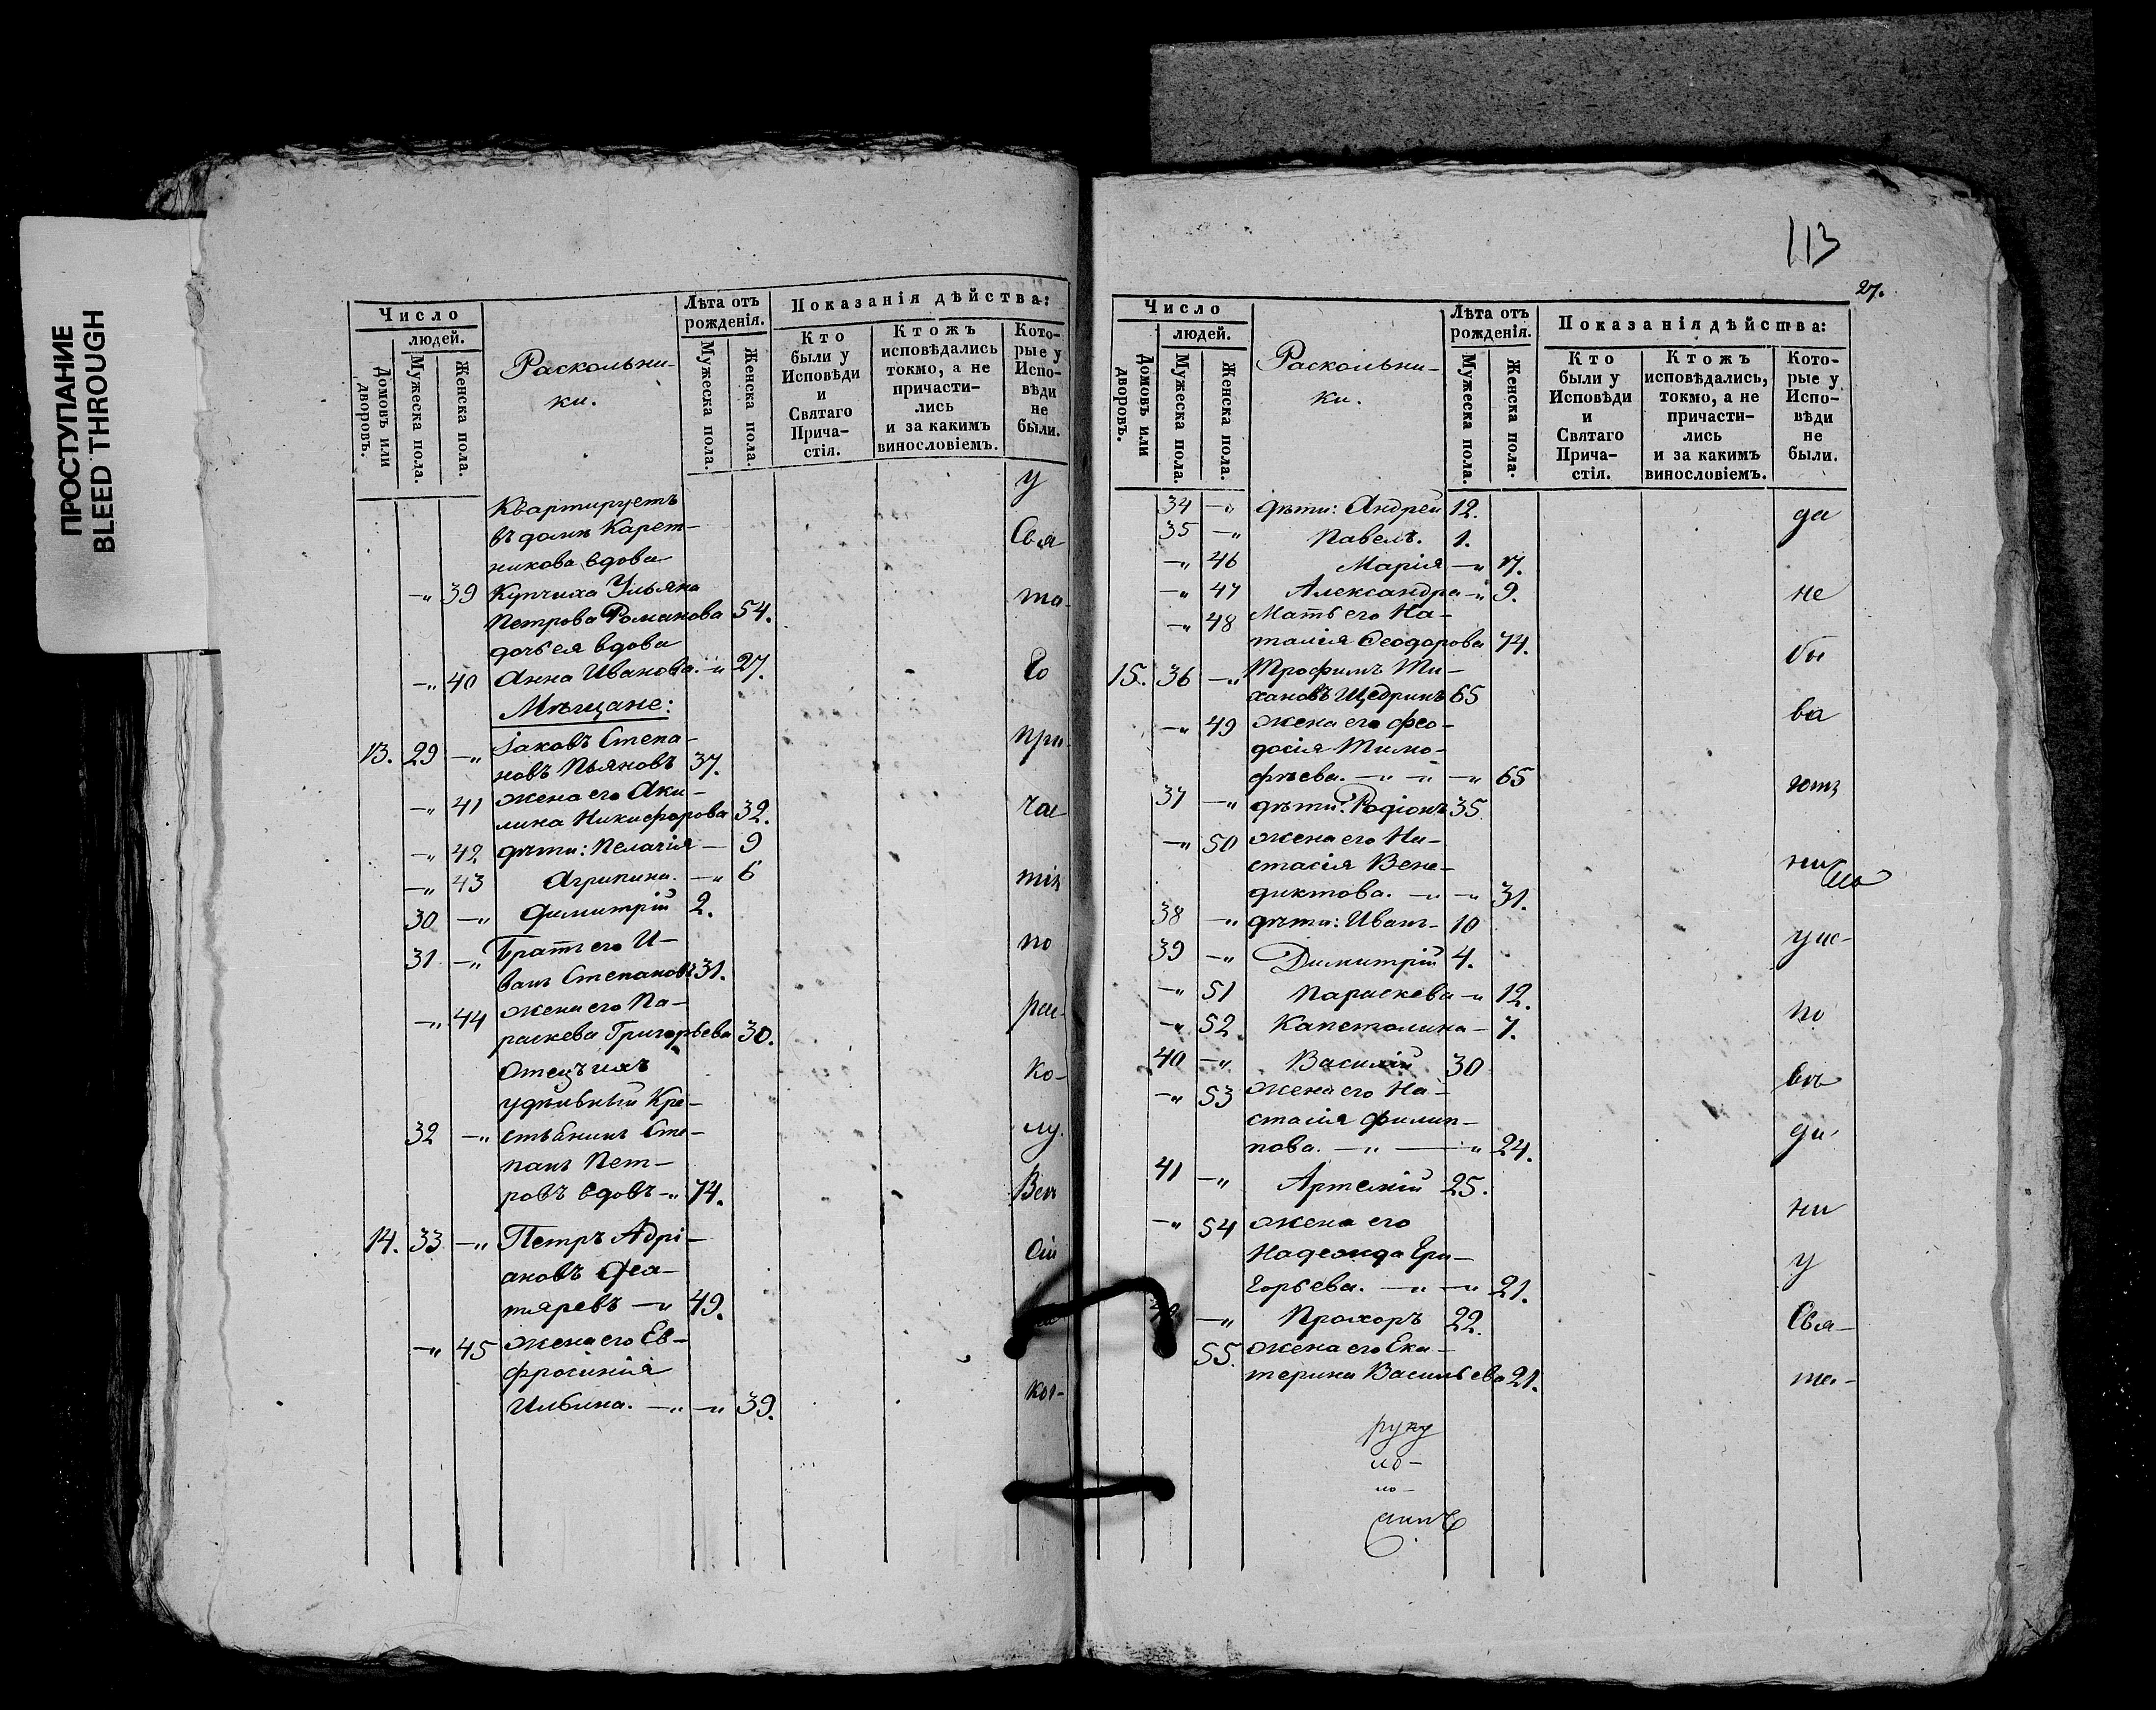 ПРОСТУПАНИЕ
BLEED THROUGH
Число
людей.
Домовъ или дворовъ.
Мужеска пола.
Женска пола.
Раскольни-
ки.
Лѣта отъ
рожденія.
Мужеска пола.
Женска пола.
Показанія дѣйства:
Кто
были у
Исповѣди
и
Святаго
Прича-
стія.
Ктожъ
исповѣдались
токмо, а не
причасти-
лись
и за какимъ
винословіемъ.
Кото-
рые у
Испо-
вѣди
не
были.
Квартируетъ у
въ домѣ Карет- Свя
никова вдова
-„ 39 Купчиха Ульяна та-
Петрова Романова 54.
дочь ея вдова
-„ 40 Анна Иванова. -„ 27. го
Мѣщане:
13. 29 -„ Іаковъ Степа- При-
новъ Пьяновъ 37.
-„ 41 жена его Аки-
лина Никифорова 32. час
-„ 42 дѣти: Пелагія - 9
-„ 43 Агрипина. -„ 6 тія
30 -„ Димитрій 2.
31 -„ Братъ его И- по
ванъ Степановъ 31.
-„ 44 жена его Па- рас-
раскева Григорьева 30.
Отецъ ихъ ко-
удѣльный Кре-
32 -„ стьянинъ Сте- лу.
панъ Пет-
ровъ вдовъ -„ 74.
14. 33 -„ Петръ Адрі-
ановъ
-„ 49.
-„ 45 жена его Ев-
фросинія
Ильина. -„ -„ 39.
113
27.
Число
людей.
Домовъ или дворовъ.
Мужеска пола.
Женска пола.
Раскольни-
ки.
Лѣта отъ
рожденія.
Мужеска пола.
Женска пола.
Показанія дѣйства:
Кто
были у
Исповѣди
и
Святаго
Прича-
стія.
Ктожъ
исповѣдались,
токмо, а не
причасти-
лись
и за какимъ
винословіемъ.
Кото-
рые у
Испо-
вѣди
не
были.
34 -„ дѣти: Андрей 12. да
35 -„ Павелъ. 1.
-„ 46 Марія -„ 17.
-„ 47 Александра -„ 9. не
-„ 48 Мать его На-
талія Ѳеодорова 74. бы
15. 36 -„ Трофимъ Ти-
хановъ Щедринъ 65 ва
-„ 49 жена его Фео-
досія Тимо-
фѣева. -„ -„ -„ 65 ютъ
37 -„ дѣти: Родіонъ 35.
-„ 50 жена его На-
стасія Вене- ни
диктова. -„ -„ 31.
38 -„ дѣти: Иванъ - 10
39 -„ Димитрій 4.
-„ 51 Параскева -„ 12.
-„ 52 Капетолина - 7. по
40 -„ Василій 30
-„ 53 жена его На-
стасія Филип-
пова. -„ -„ 24.
41 -„ Артемій 25.
-„ 54 жена его ни
Надежда Гри-
горьева. -„ -„ 21. у
-„ Прохоръ 22. Свя-
55. жена его Ека-
терина Васильева 21. та-
руку